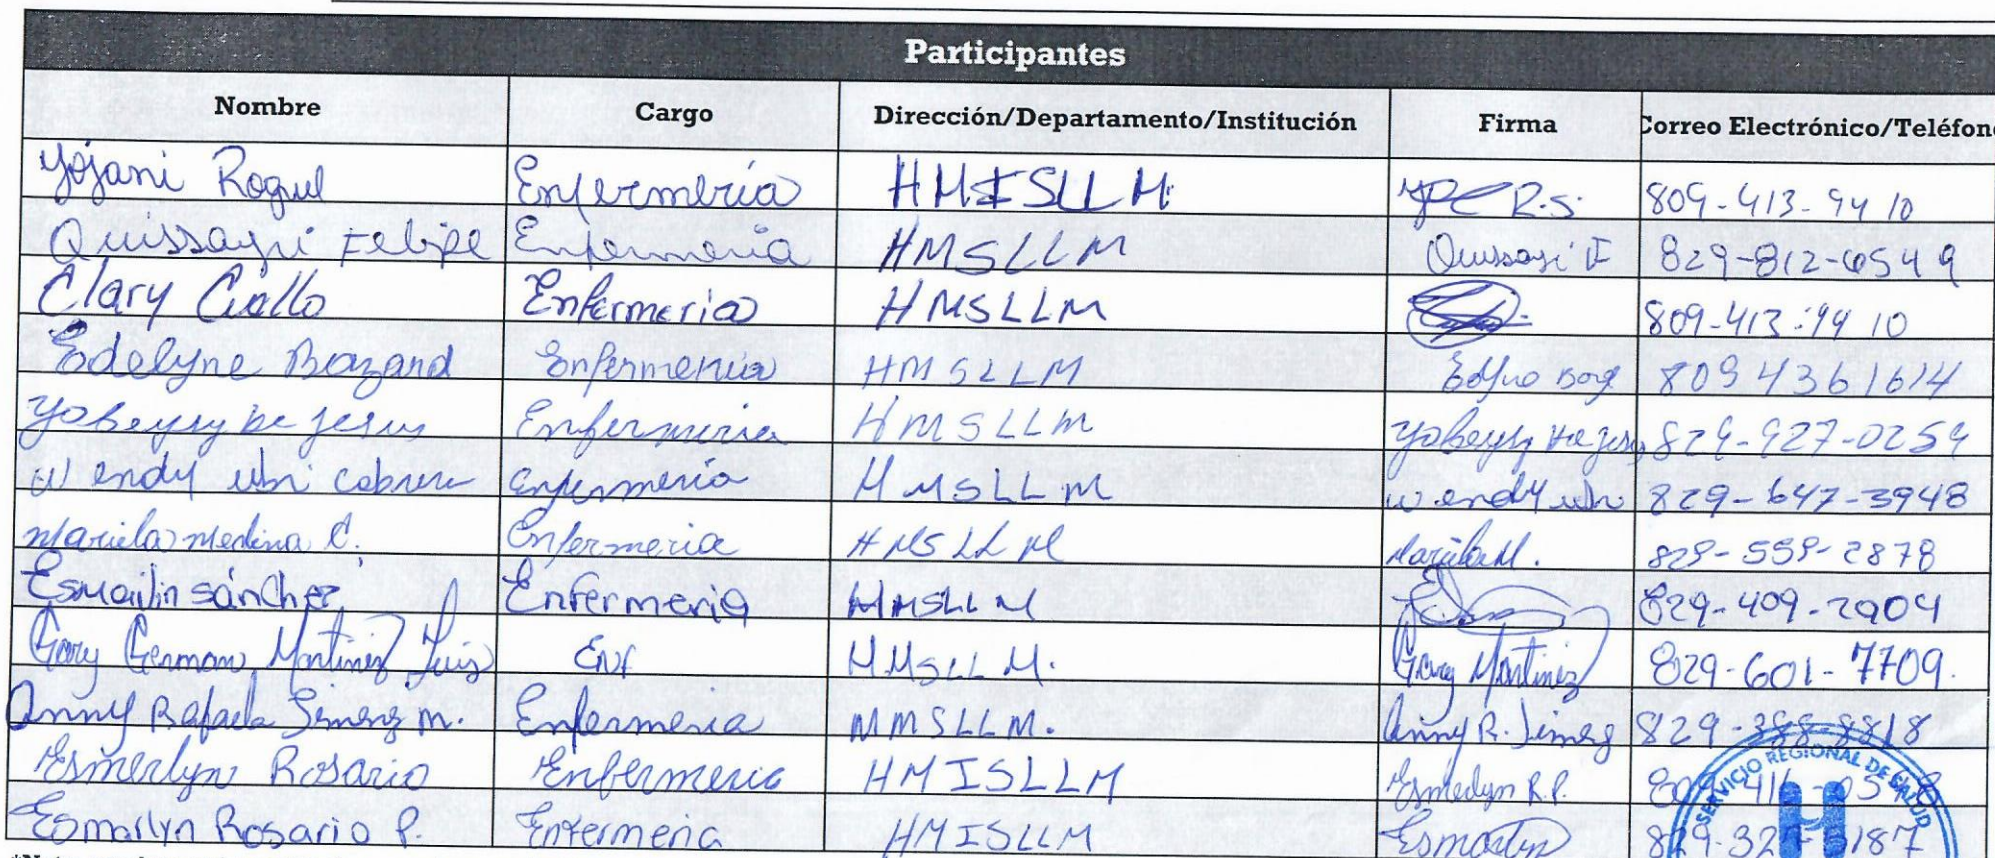 Participantes
Nombre Cargo Dirección/Departamento/Institución Firma Correo Electrónico/Teléfon
Yojani Roquel Enfermería HMISLLM R.S. 809-413-9410
Quissayri Felipe Enfermeria HMSLLM Quissayi F 829-812-6549
Clary Cuello Enfermería HMSLLM 809-413-9410
Edelyne Bazard Enfermeria HMSLLM 8094361614
Yobeysy De Jesus Enfermeria HMSLLM Yobeysy De Jesus 829-927-0259
Wendy ubri cabrera Enfermería HMSLLM Wendy ubri 829-647-3948
Mariela Medina C. Enfermeria HMSLLM Mariela M. 829-559-2878
Esmailin sánchez Enfermeria HMSLLM 829-409-2904
Gary German Martinez Luis Enf HMSLLM. Gary Martinez 829-601-7709.
Anny Rafaela Jimenez M. Enfermeria MMSLLM. Anny R. Jimenez 829-388-8818
Esmerlyn Rosario Enfermeria HMISLLM Esmerlyn R.P.
Esmarlyn Rosario P. Enfermeria HMISLLM Esmarlyn
SERVICIO REGIONAL DE SALUD